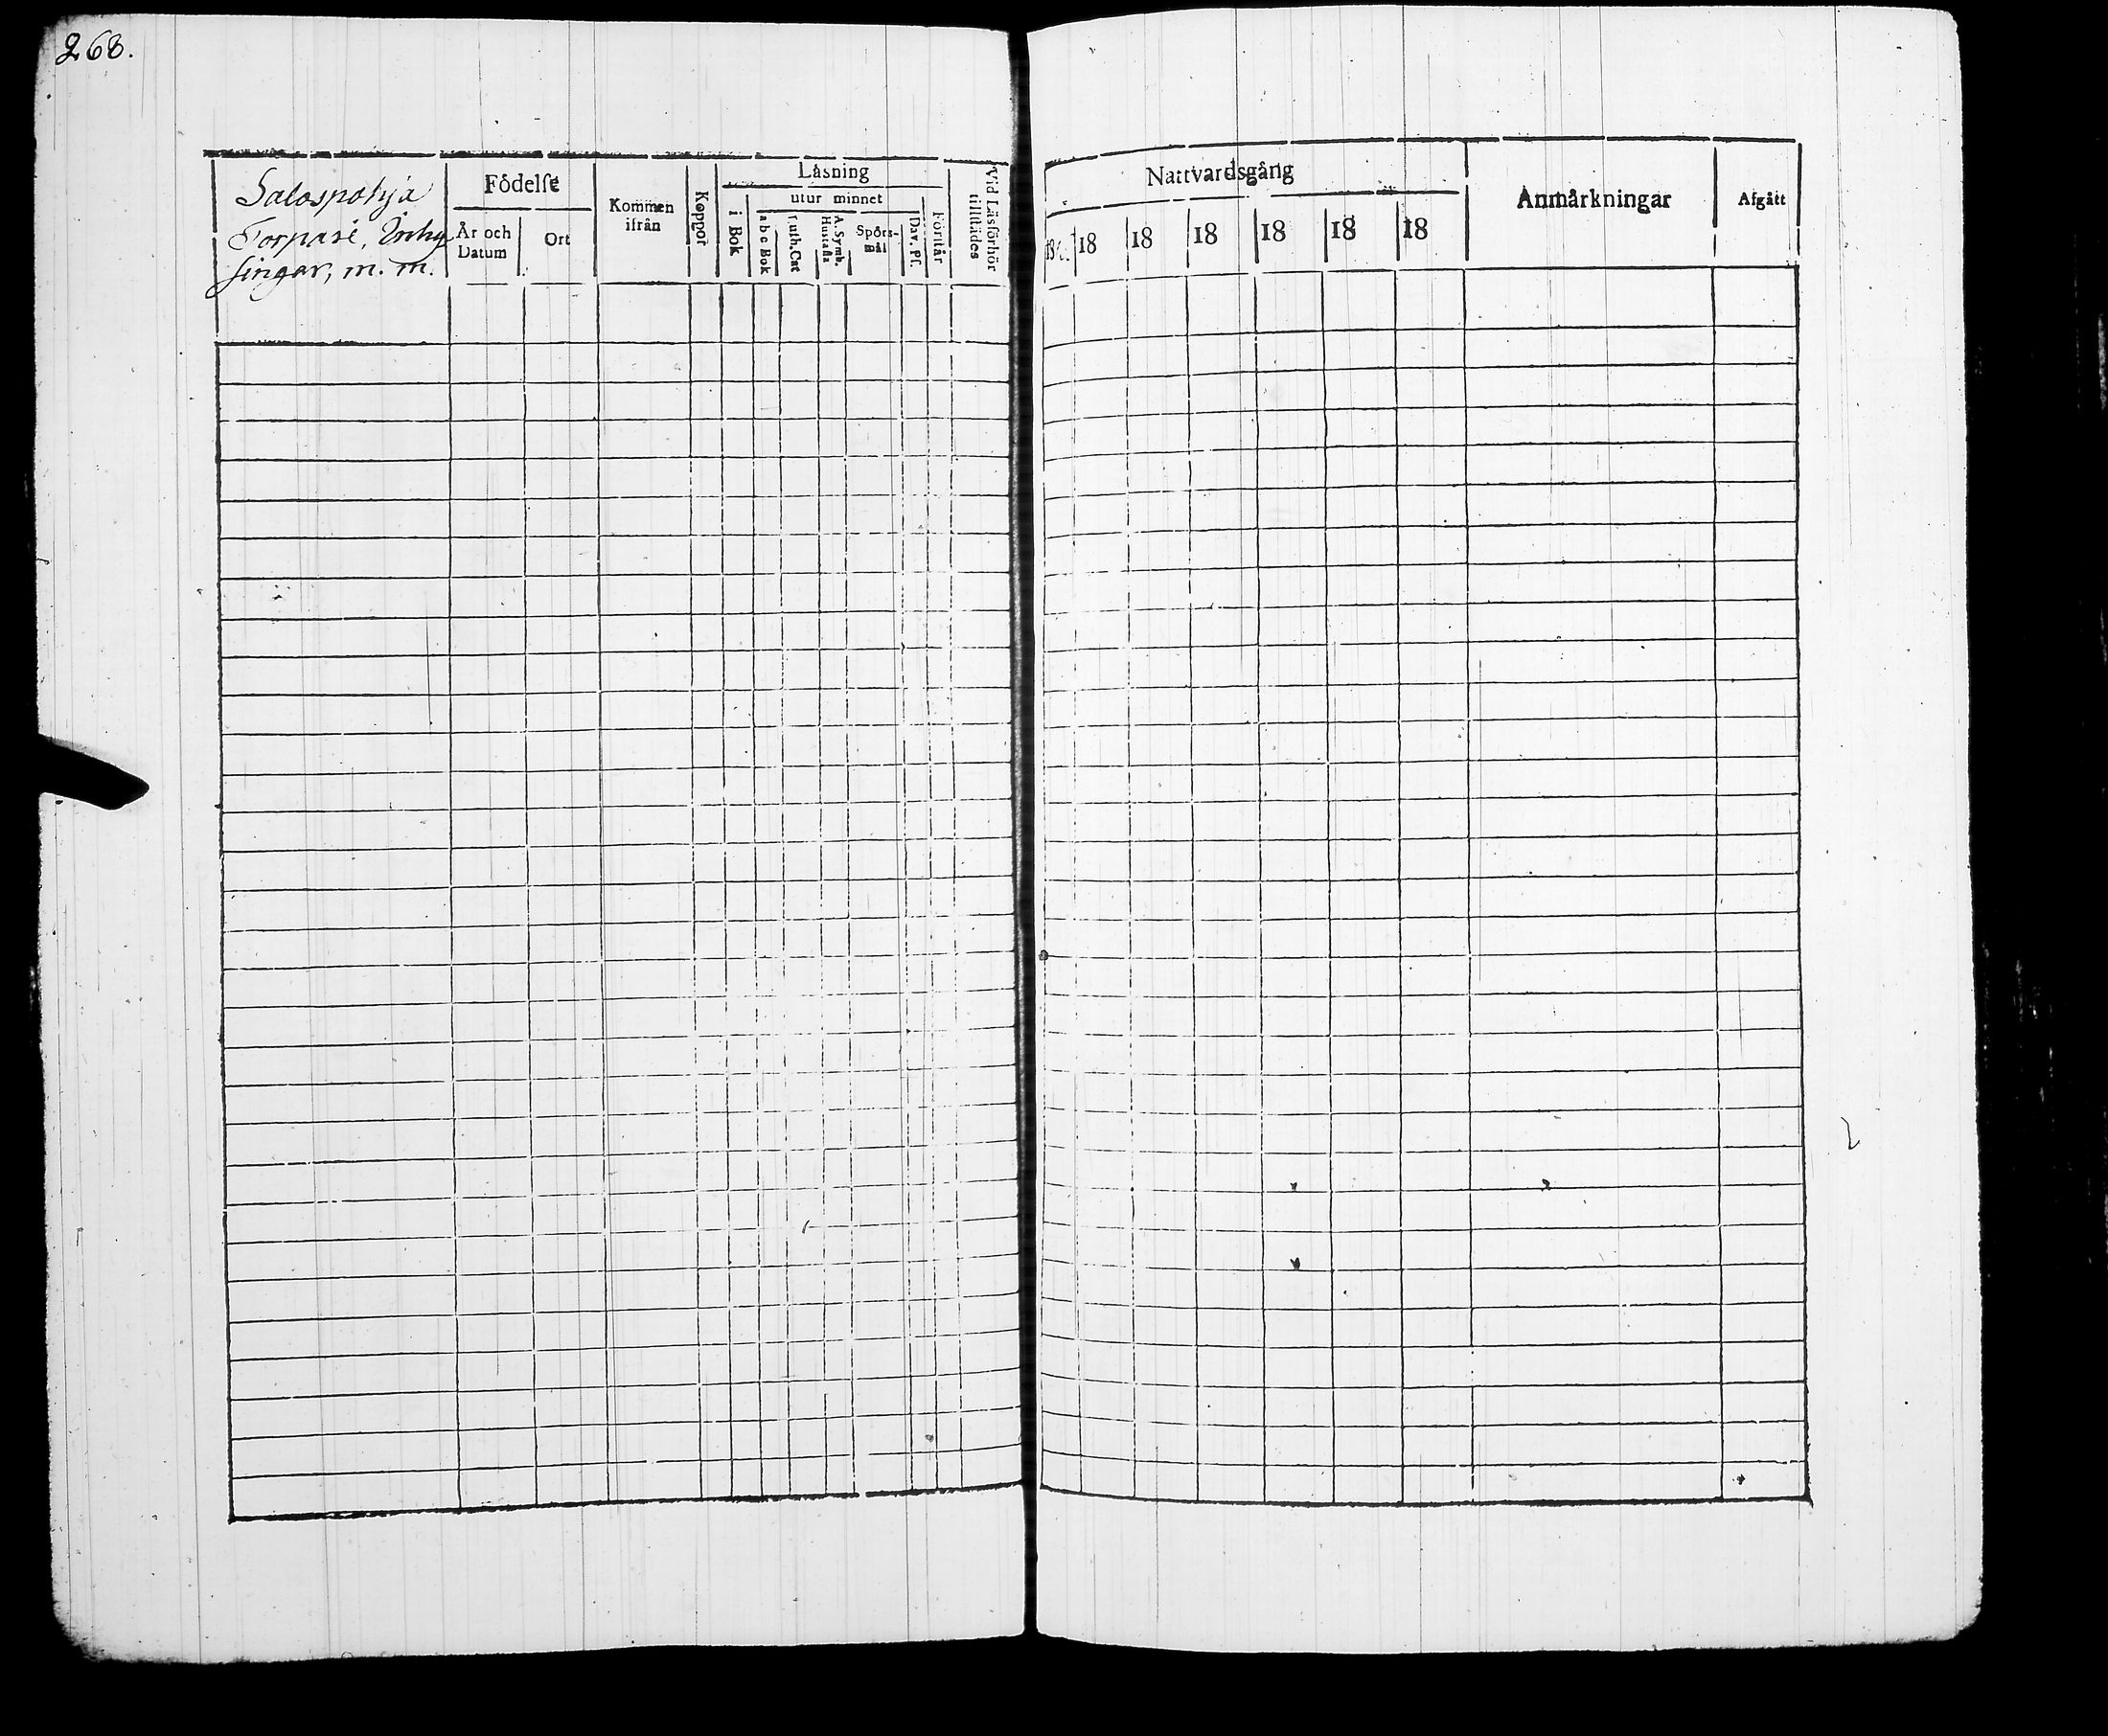 268.
Salospohja
Torpari, Inhy
singar, m. m.
Födelse
År och
Datum
Ort
Kommen
ifrån
Koppor
Läsning
i Bok
utur minnet
a b c Bok
Luth. Cat
A. Symb.
Hustafla
Spörs-
mål
Dav. Ps.
Förstår
Vid Läsförhör
tillstädes
Nattvardsgång
18
18
18
18
18
18
18
Anmärkningar
Afgått